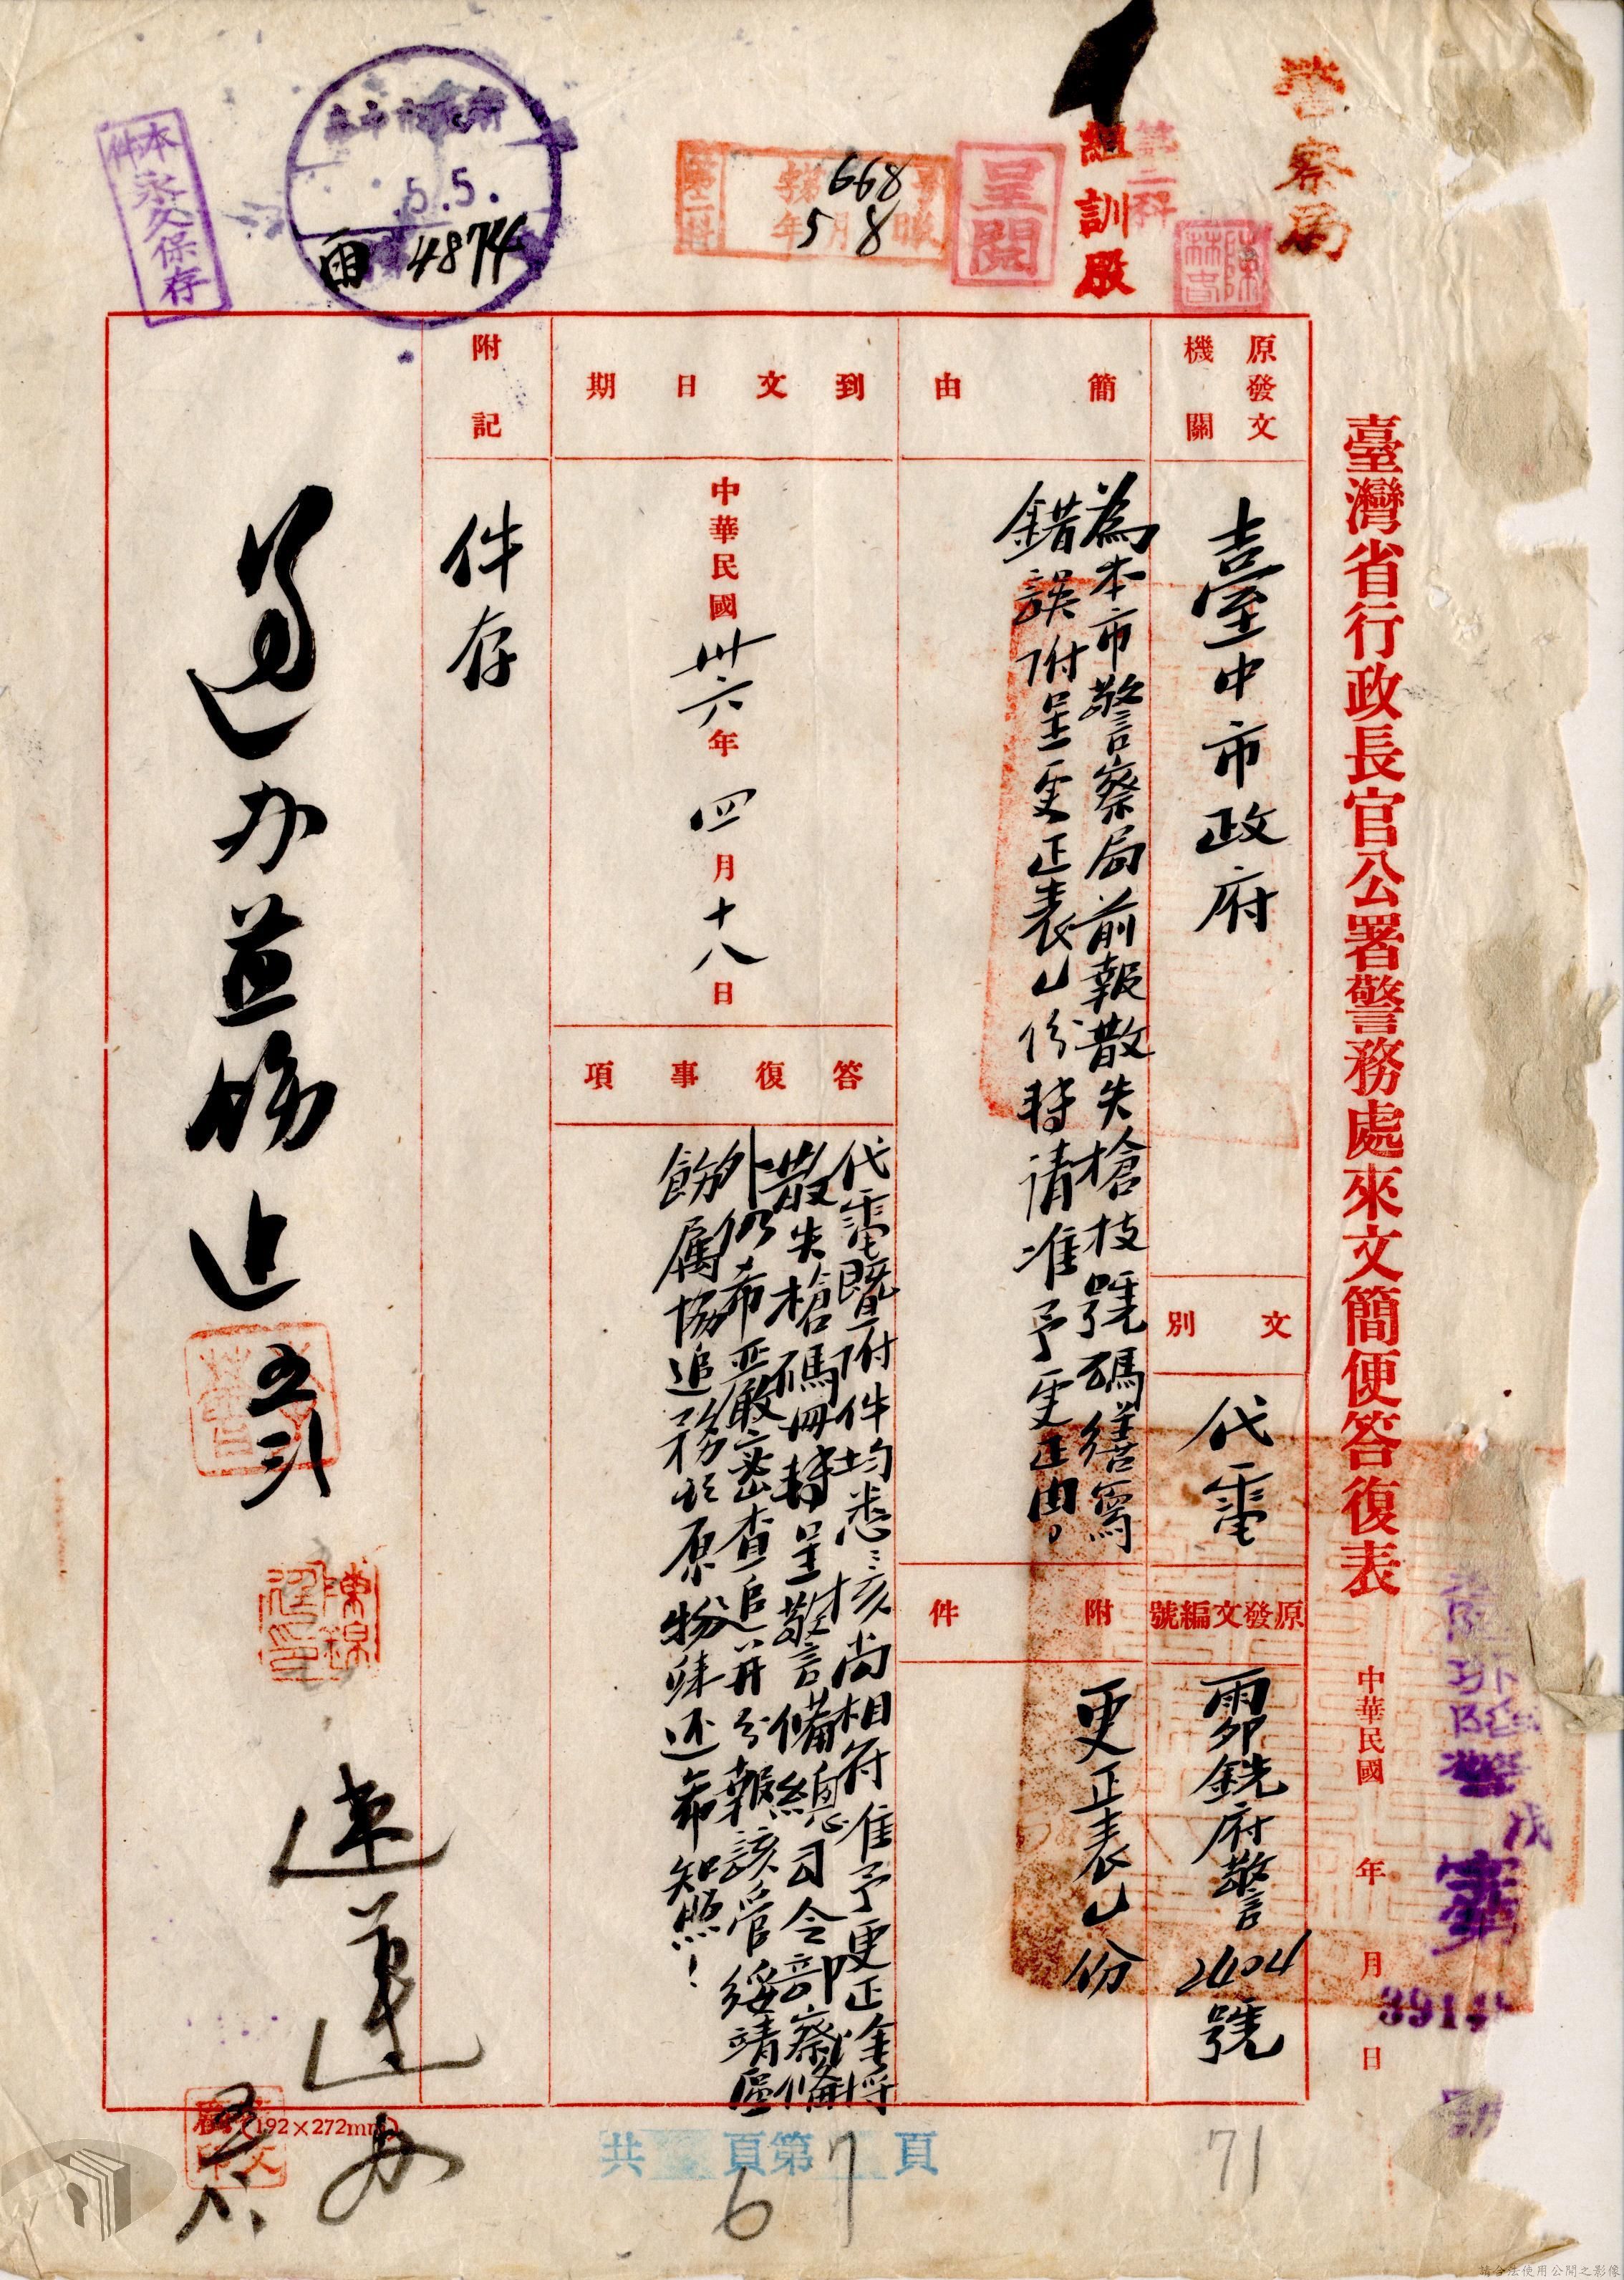 警察局
第二科
組訓股
呈閱
陳
第二科
號668號
年5月8
5.5.
雨 4874
本件永久保存
臺灣省行政長官公署警務處來文簡便答復表
中華民國 年 月 日
3914
原發文機關
臺中市政府
文別
代電
原發文編號
霽卯銑府警2404號
簡由
為本市警察局前報散失槍枝號碼繕寫
錯誤附呈更正表乙份特请准予更正由。
附件
更正表乙份
到文日期
中華民國卅六年四月十八日
答復事項
代電暨附件均悉核尚相符准予更正除將
散失槍碼冊轉呈警備總司令部察備
外仍希严嚴密查追并分報該管綏靖區
飭屬協追務於原物歸还希知照!
附記
件存
速辦
(192×272mm)
共 頁第 頁
6 7
71
請合法使用公開之影像